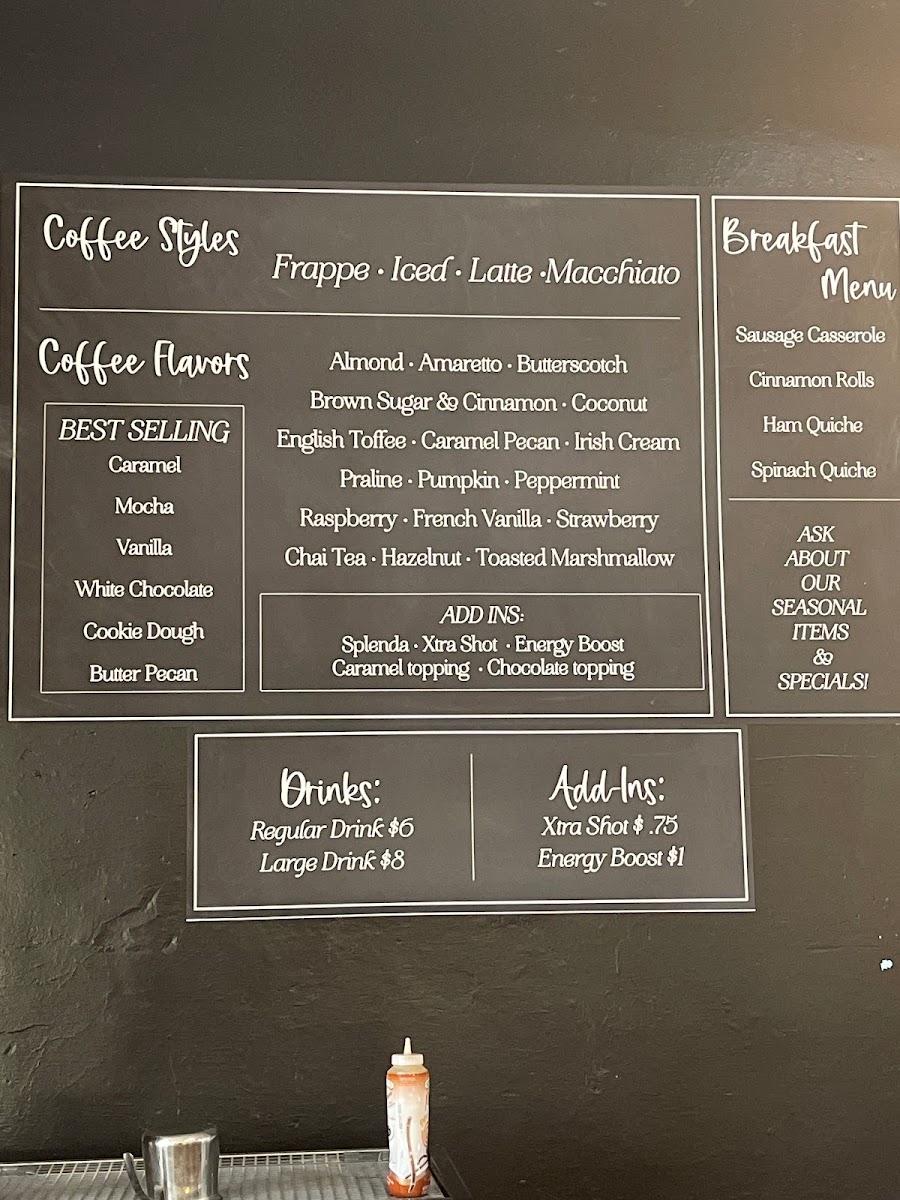 Coffee Styles
Frappe · Iced · Latte · Macchiato
Coffee Flavors
BEST SELLING
Caramel
Mocha
Vanilla
White Chocolate
Cookie Dough
Butter Pecan
Almond · Amaretto · Butterscotch
Brown Sugar & Cinnamon · Coconut
English Toffee · Caramel Pecan · Irish Cream
Praline · Pumpkin · Peppermint
Raspberry · French Vanilla · Strawberry
Chai Tea · Hazelnut · Toasted Marshmallow
ADD INS:
Splenda · Xtra Shot · Energy Boost
Caramel topping · Chocolate topping
Breakfast
Menu
Sausage Casserole
Cinnamon Rolls
Ham Quiche
Spinach Quiche
ASK
ABOUT
OUR
SEASONAL
ITEMS
&
SPECIALS!
Drinks:
Regular Drink $6
Large Drink $8
Add-Ins:
Xtra Shot $ .75
Energy Boost $1